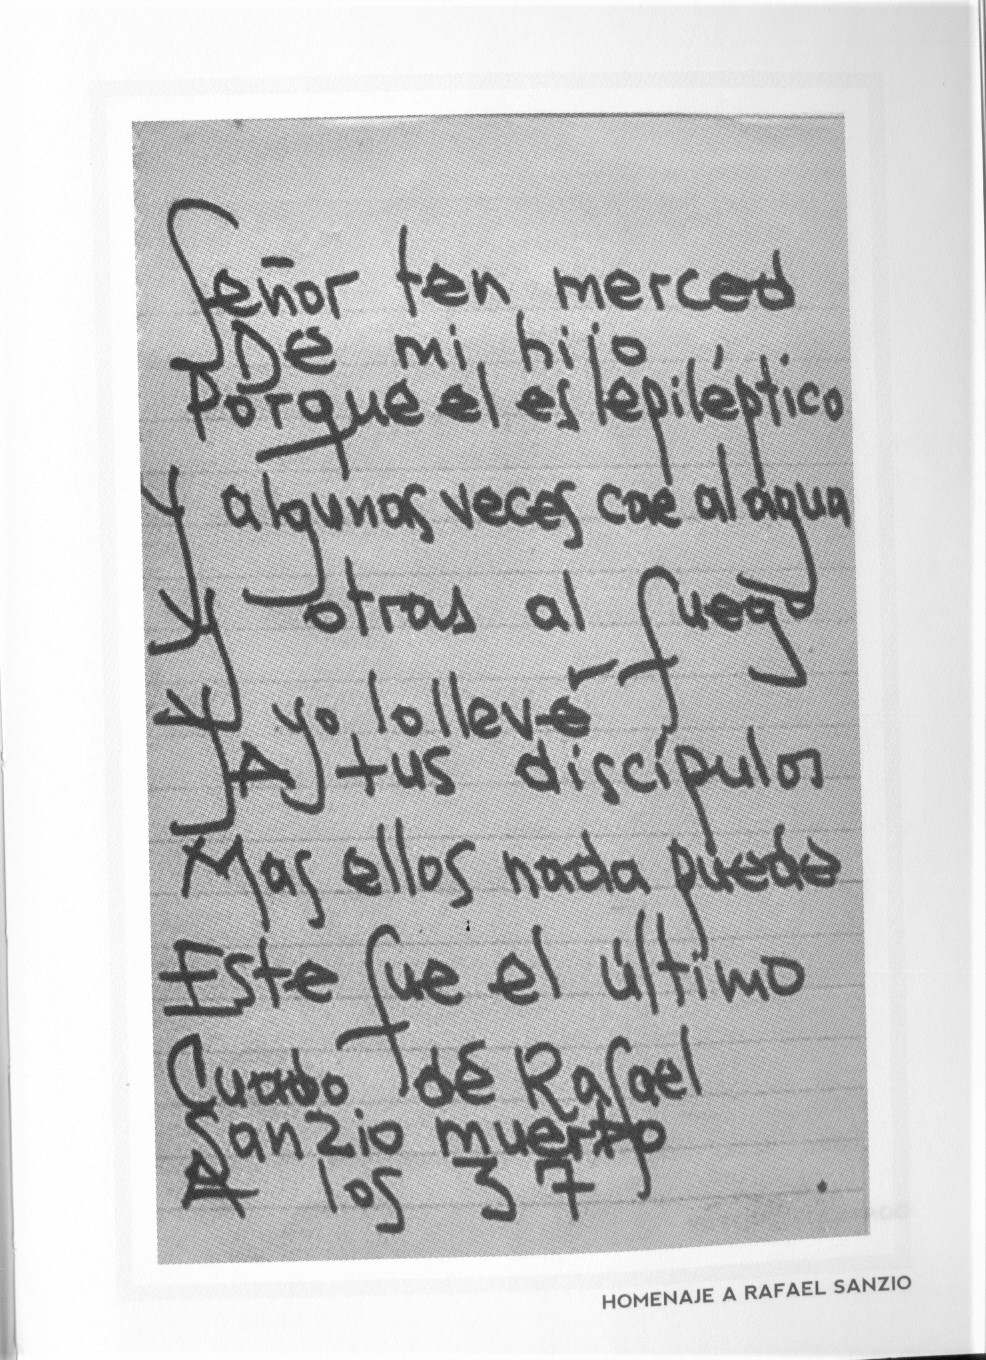 Señor ten merced
De mi hijo
Porque el es lepiléptico
Y algunas veces cae al agua
Y otras al fuego
Y yo lo llevé
A tus discípulos
Mas ellos nada puede
Este fue el último
Cuado de Rafael
Sanzio muerto
A los 37
HOMENAJE A RAFAEL SANZIO